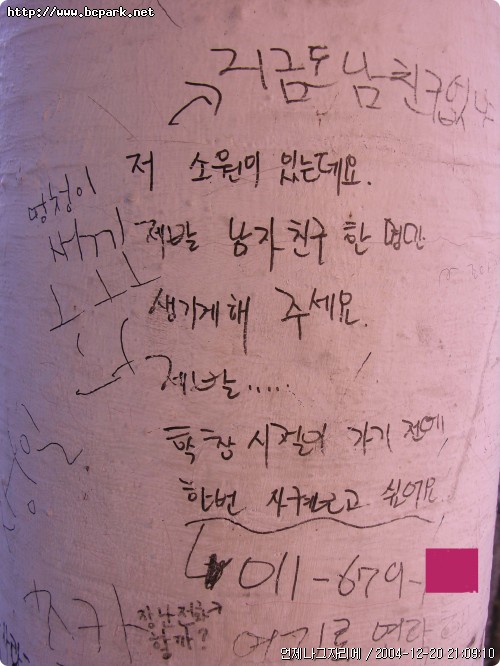 http://www.bcpark.net
지금도 남친구없냐
저 소원이 있는데요.
멍청이
제발 남자친구 한 명만
생기게해 주세요.
제발.....
학창시절이 가기 전에
한번 사궈보고 싶어요
011-679-
장난전화
할까?
여기로
언제나그자리에 / 2004-12-20 21:09:10